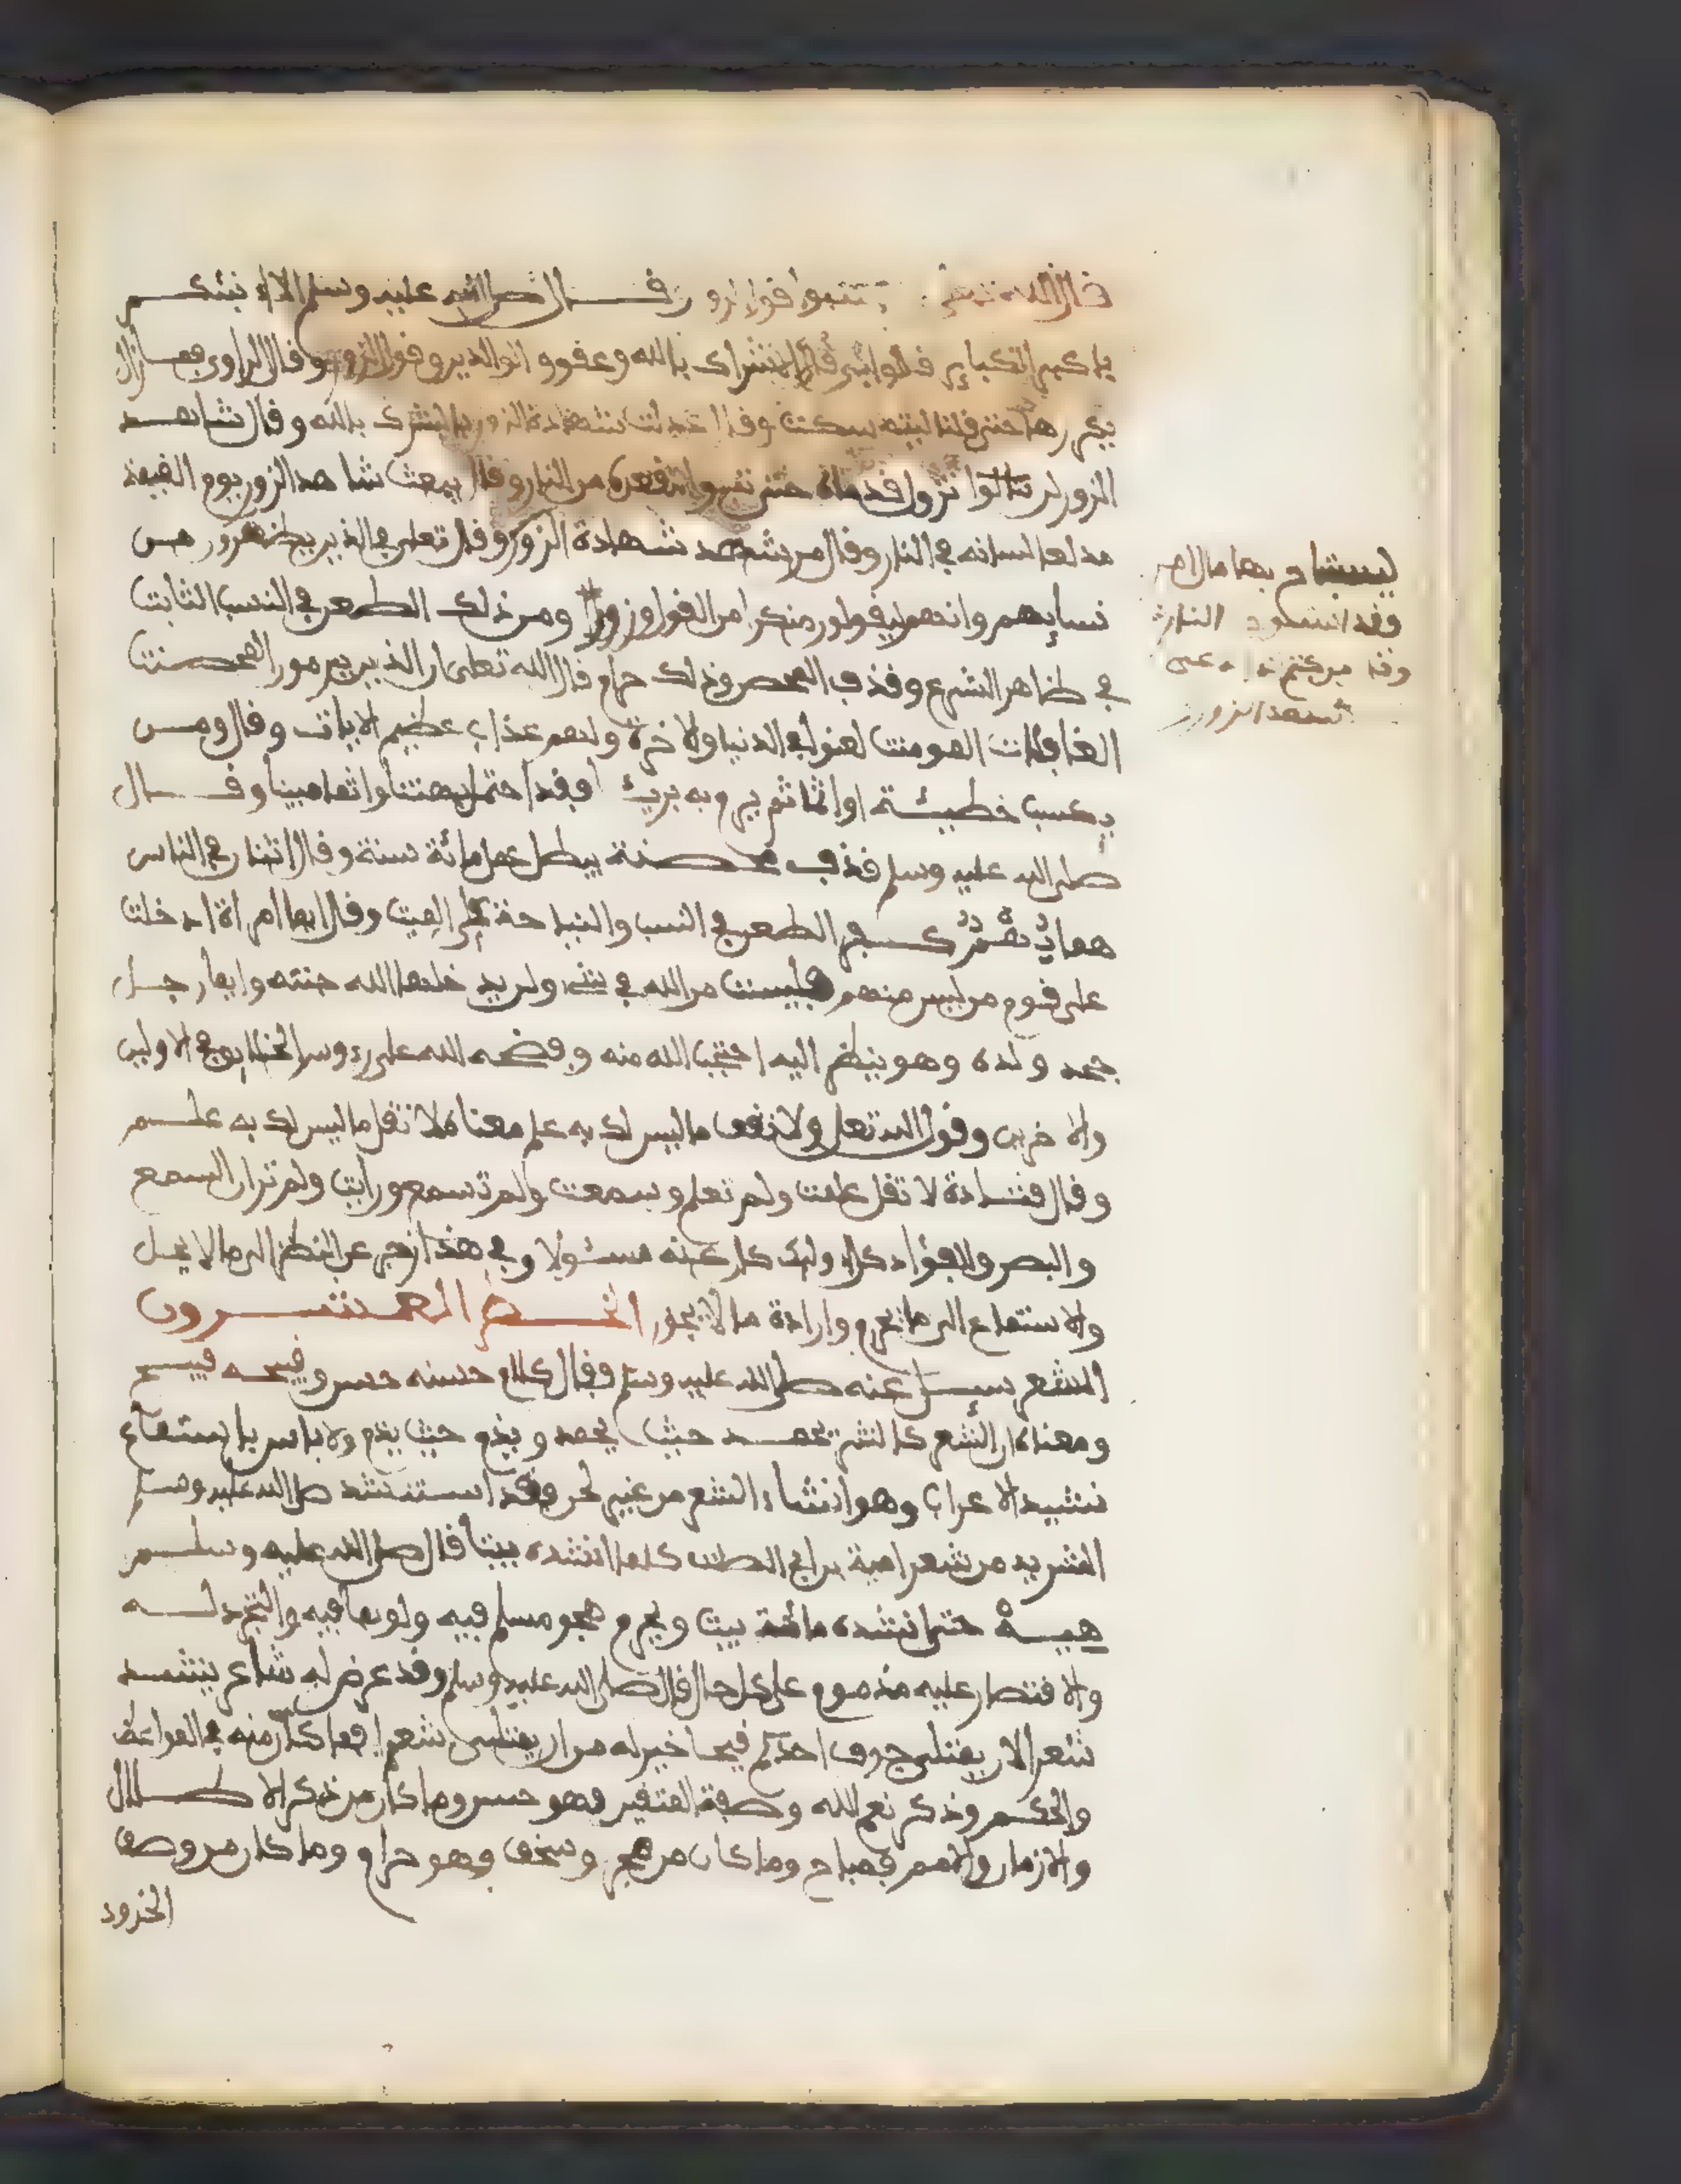 قال الله تعلى واجتنبوا قول الزور وقال صلى الله عليه وسلم الا انبئكم
باكبر الكباير قالوا بلى قال الاشراك بالله وعقوق الوالدين وقول الزور وقال الراوي فما زال
يكررها حتى قلنا ليته سكت وقال عدلت شهادة الزور بالشرك بالله وقال شاهد
الزور لن تزول قدماه حتى النار وقال يبعث شاهد الزور يوم القيمة
مدلعا لسانه في النار وقال من شهد شهادة الزور وقال تعلى في الذين يظهرون من
نسايهم وانهم ليقولون منكرا من القول وزورا ومن ذلك الطعن في النسب الثابت
في ظاهر الشرع وقذف المحصن وذلك حرام قال الله تعلى ان الذين يرمون المحصنت
الغافلات المومنت لعنوا في الدنيا والاخرة ولهم عذاب عظيم الايات وقال ومن
يكسب خطيئة او اثما ثم يرم به بريئا فقد احتمل بهتنا واثما مبينا وقال
صلى الله عليه وسلم قذف محصنة يبطل عمل مائة سنة وقال اثنان في الناس
هما بهم كفر الطعن في النسب والنياحة على الميت وقال ايما امراة ادخلت
على قوم من ليس منهم فليست من الله في شيء ولن يدخلها الله جنته وايما رجل
جحد ولده وهو ينظر اليه احتجب الله منه وفضحه الله على رءوس الخلايق في الاولين
والاخرين وقول الله تعلى ولا تقف ما ليس لك به علم معناه لا تقل ما ليس لك به علم
وقال قتادة لا تقل علمت ولم تعلم وسمعت ولم تسمع ورايت ولم تر ان السمع
والبصر والفؤاد كل اولئك كان عنه مسئولا وفي هذا زجر عن النظر الى ما لا يحل
والاستماع الى ما يحرم وارادة ما لا يجوز العشرون
الشعر سيل عنه صلى الله عليه وسلم فقال كلام حسنه حسن وقبيحه قبيح
ومعناه ان الشعر كالنثر يحمد حيث يحمد ويذم حيث يذم ولا باس باستماع
نشيد الاعراب وهو انشاد الشعر من غير لحن وقد استنشد صلى الله عليه وسلم
الشريد من شعر امية بن ابي الصلت كلما انشده بيتا قال صلى الله عليه وسلم
هيه حتى انشده مائة بيت ويحرم هجو مسلم فيه ولو بما فيه والتجرد له
والاقتصار عليه مذموم على كل حال قال صلى الله عليه وسلم وقد عرض له شاعر ينشد
شعرا لان يمتلي جوف احدكم قيحا خير له من ان يمتلي شعرا فما كان منه في المواعظ
والحكم وذكر نعم الله وصفة المتقين فهو حسن وما كان من ذكر الاطلال
والازمان والامم فمباح وما كان من هجو وسخف فهو حرام وما كان من وصف
الخدود
ليستباح بها مال امر
فقد استوجب النار
وقال من كتم
شهد الزور